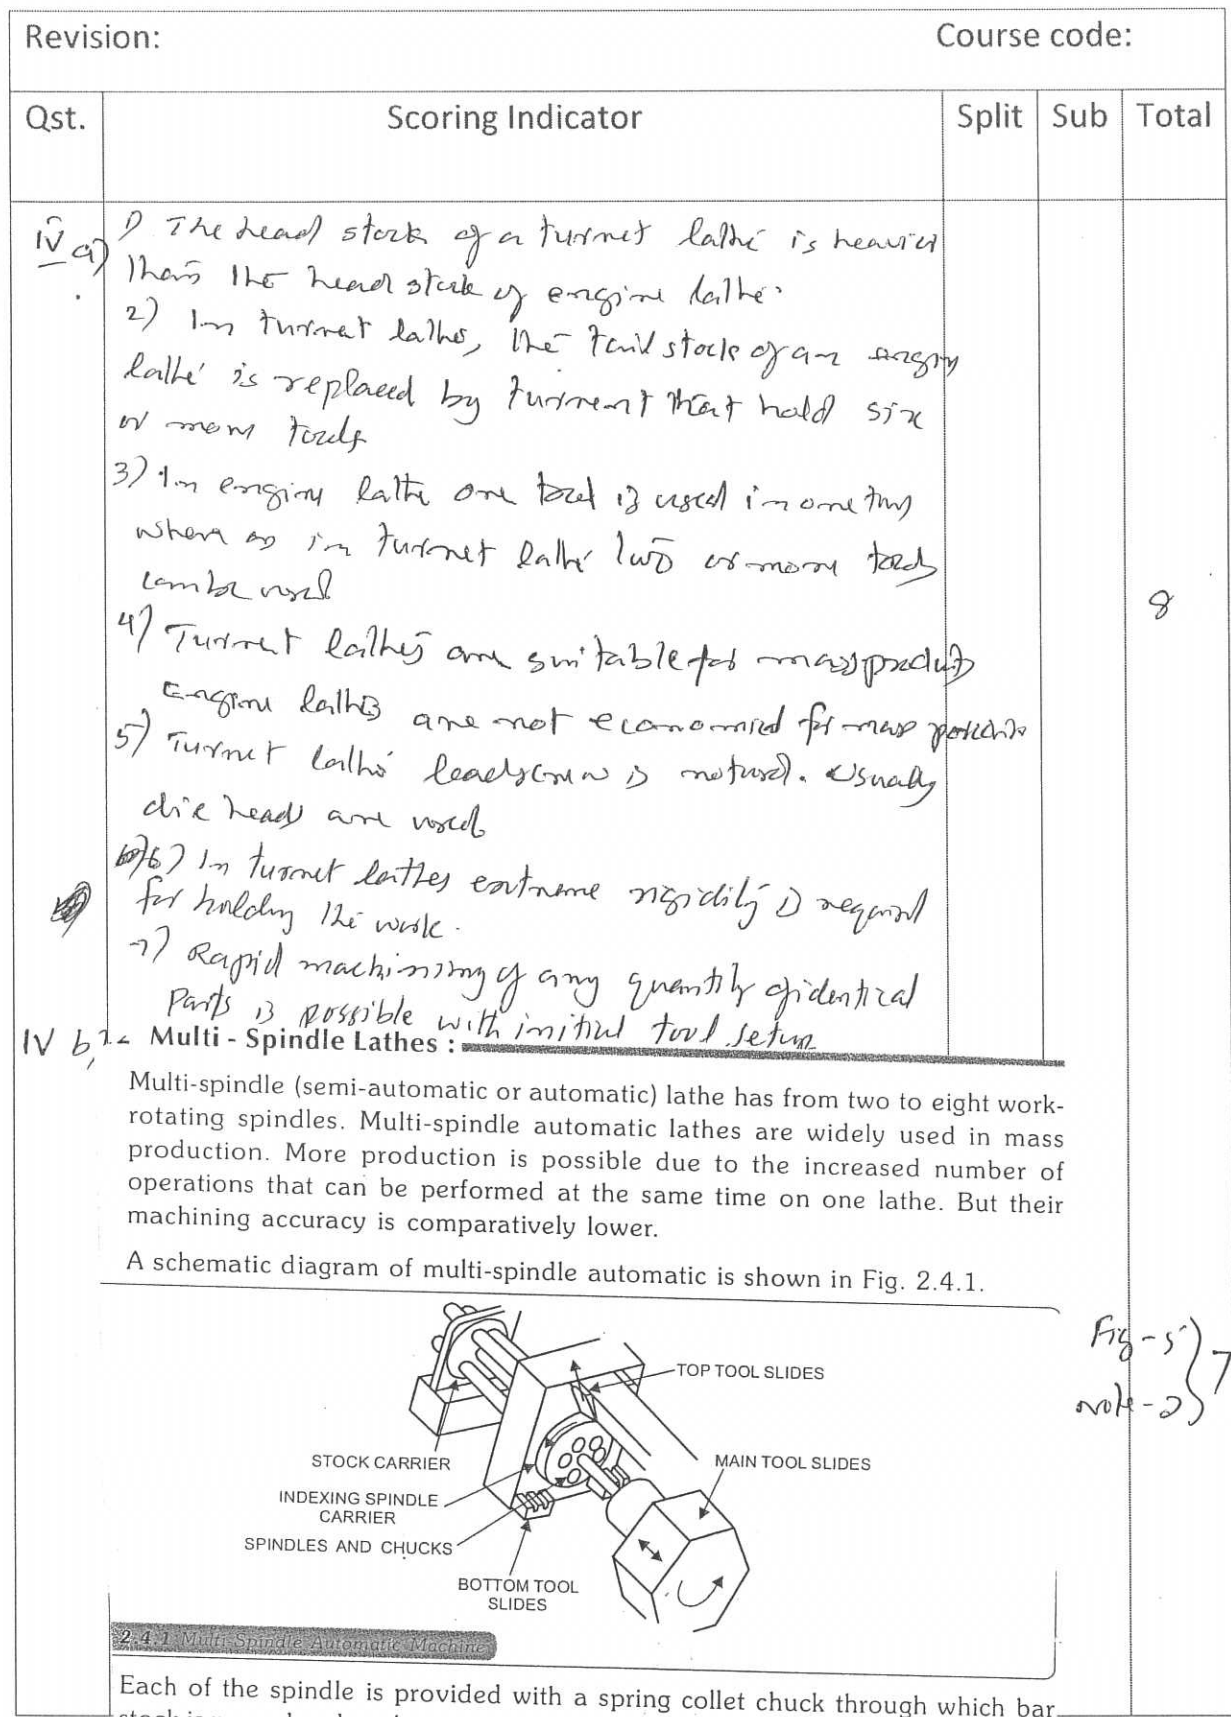 Revision: Course code:
Qst. Scoring Indicator Split Sub Total
IV a) 1) The head stock of a turret lathe is heavier
than the head stock of engine lathe.
2) In turret lathes, the tail stock of an engine
lathe is replaced by turrent that hold six
or more tools
3) In engine lathe one tool is used in one time
where as in turret lathe two or more tools
can be used
8
4) Turret lathes are suitable for mass products
Engine lathes are not economical for mass
5) Turret lathe leadscrew is not used. Usually
die heads are used
6) In turret lathes extreme rigidity is required
for holding the work.
7) Rapid machining of any quantity of identical
parts is possible with initial tool setup
IV b, Multi - Spindle Lathes :
Multi-spindle (semi-automatic or automatic) lathe has from two to eight work-
rotating spindles. Multi-spindle automatic lathes are widely used in mass
production. More production is possible due to the increased number of
operations that can be performed at the same time on one lathe. But their
machining accuracy is comparatively lower.
A schematic diagram of multi-spindle automatic is shown in Fig. 2.4.1.
Fig - 5
7
Note - 2
TOP TOOL SLIDES
STOCK CARRIER
MAIN TOOL SLIDES
INDEXING SPINDLE
CARRIER
SPINDLES AND CHUCKS
BOTTOM TOOL
SLIDES
2.4.1 Multi Spindle Automatic Machine
Each of the spindle is provided with a spring collet chuck through which bar